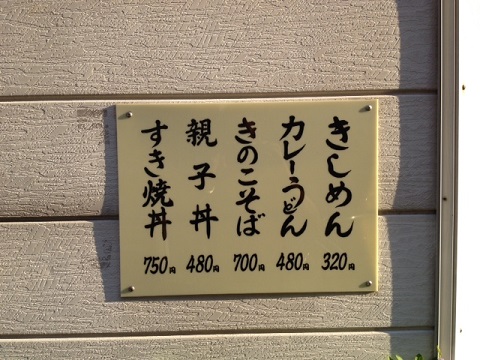 きしめん 320円
カレーうどん 480円
きのこそば 700円
親子丼 480円
すき焼丼 750円